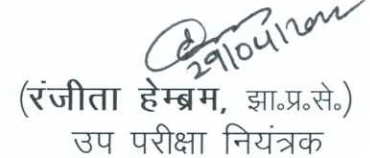 29/04/2022
(रंजीता हेम्ब्रम, झा.प्र.से.)
उप परीक्षा नियंत्रक